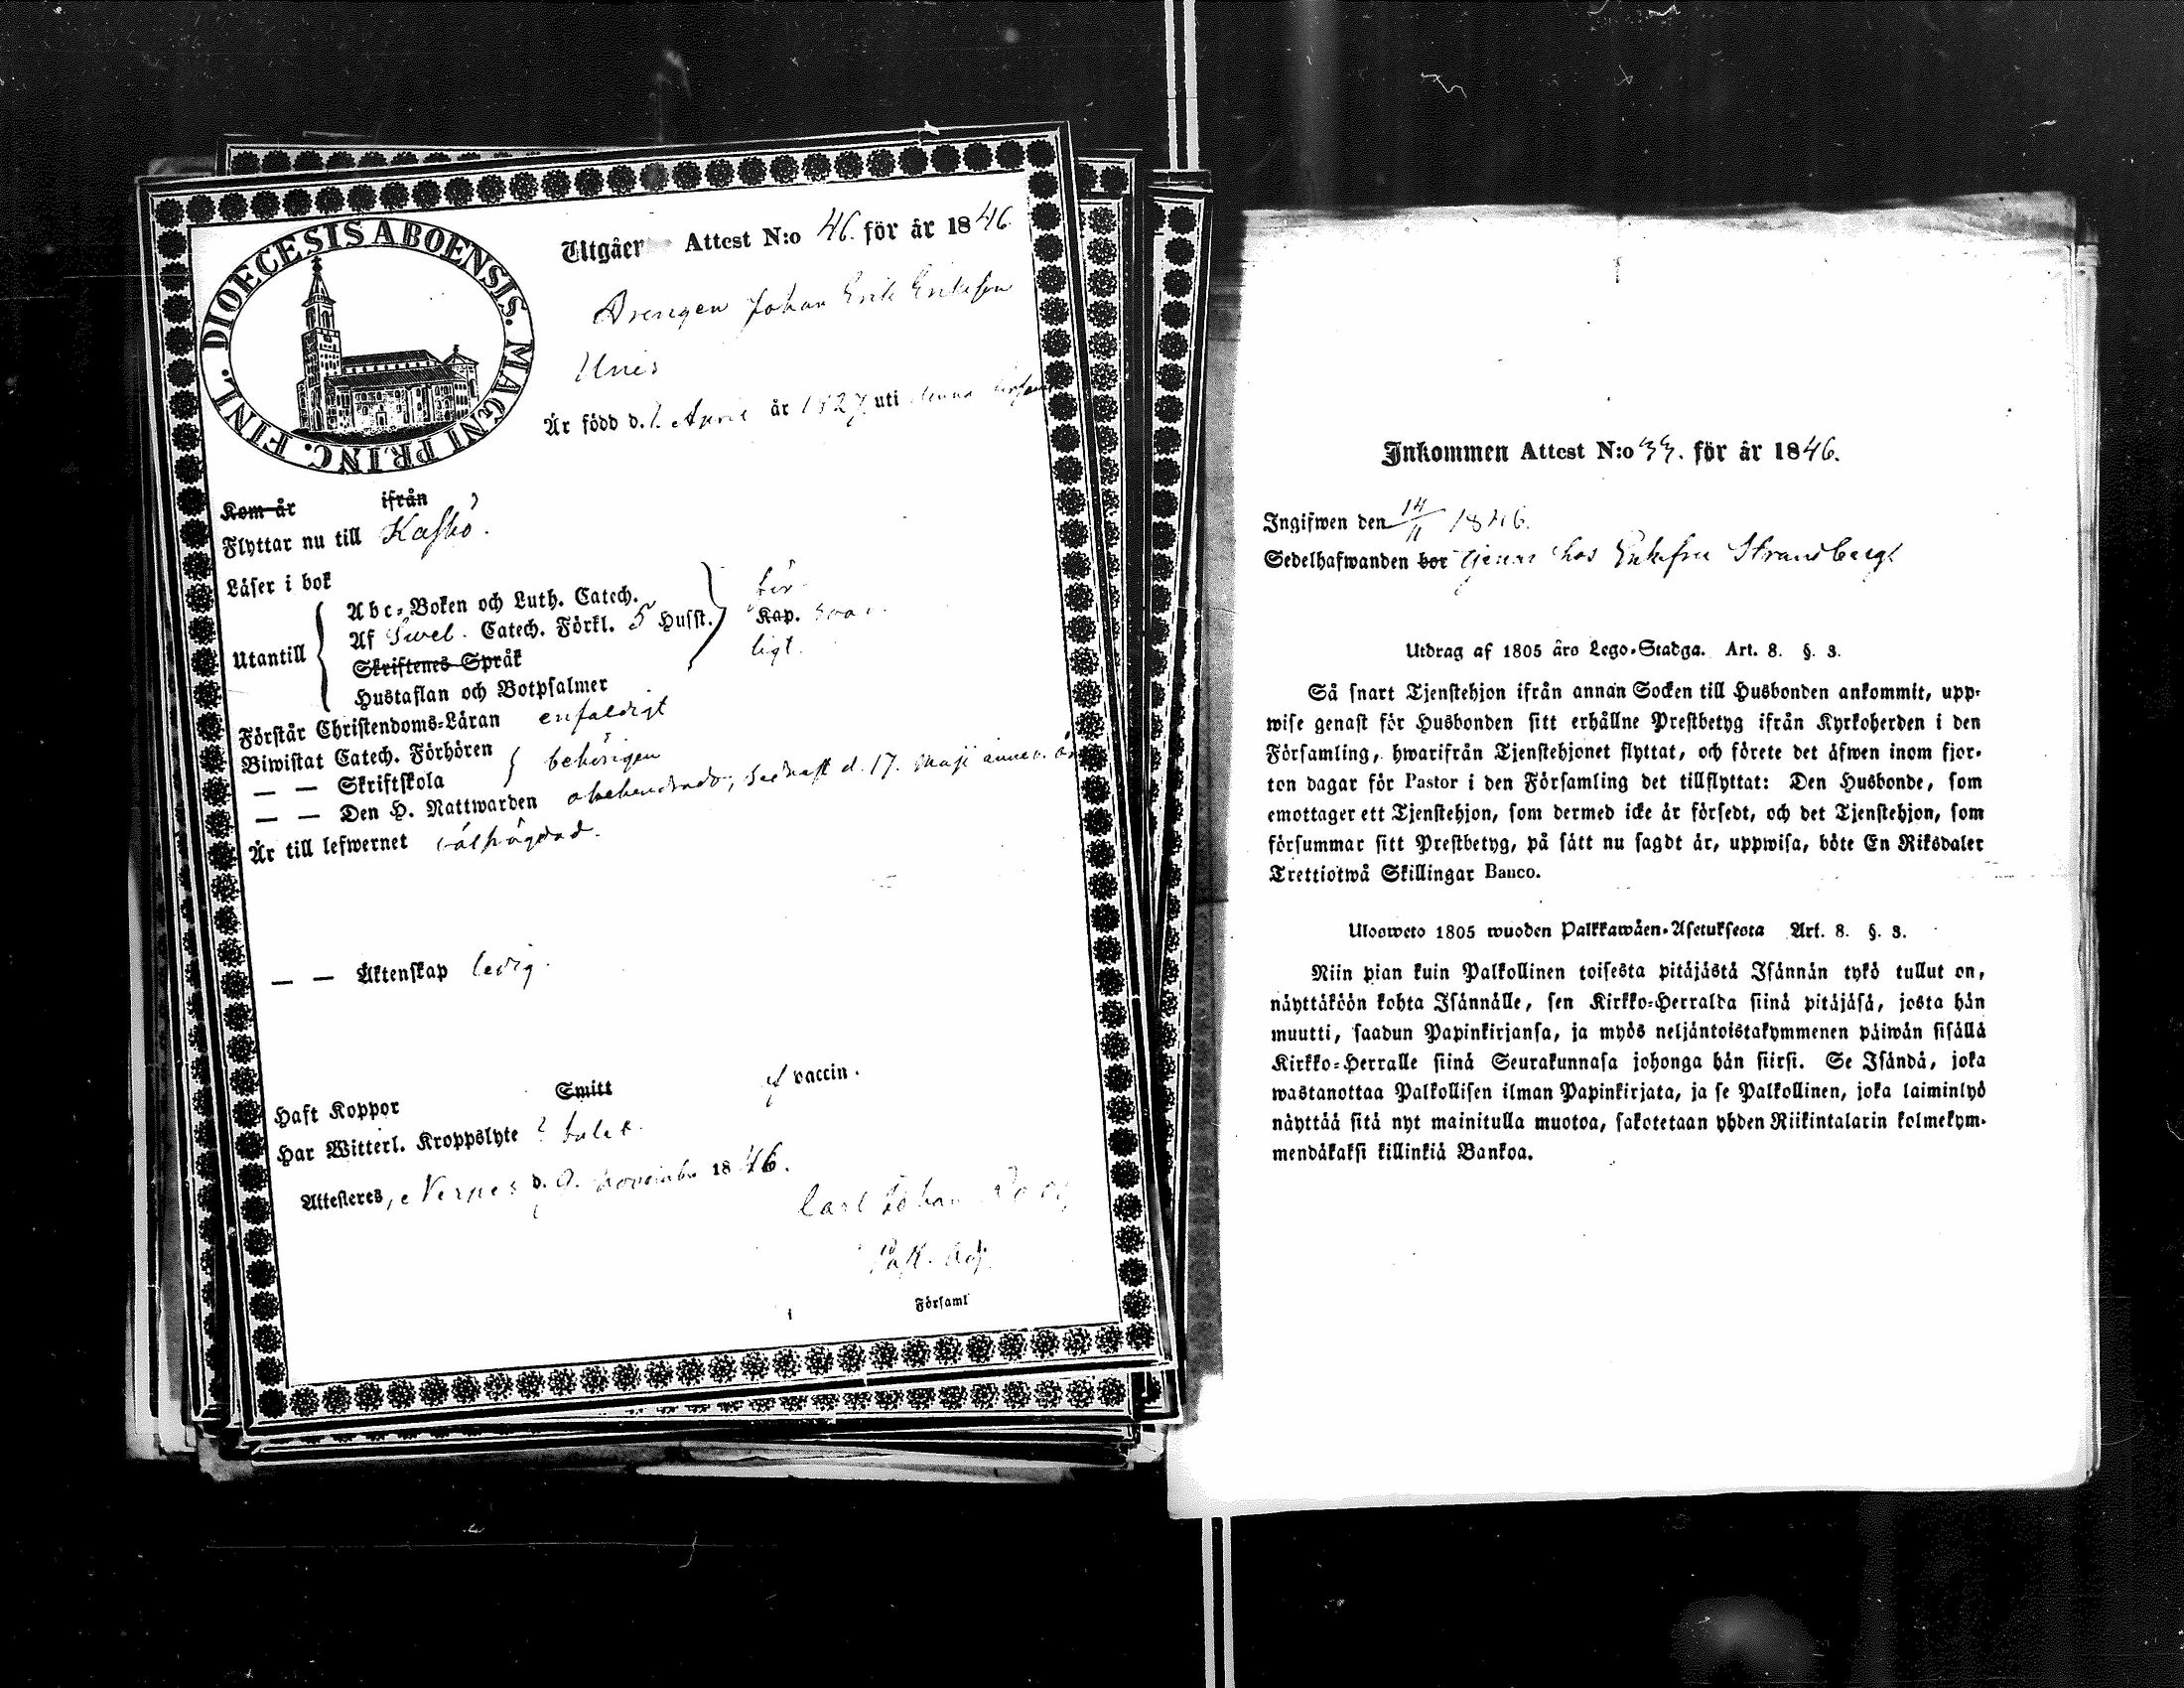 DIOECESIS ABOENSIS. MAGNI PRINC. FINL.
Utgåen Attest N:o 46. för år 1846.
Drengen Johan Erik Eriksson
Är född d. 1. April år 1827 uti denna
Kom år ifrån
Flyttar nu till Kaskö.
Läser i bok
Utantill
Abc-Boken och Luth. Catech.
Af Swel. Catech. Förkl. 5 Husst.
Skriftenes Språk
Hustaflan och Botpsalmer
för
Kap.
ligt.
Förstår Christendoms-Läran enfaldigt
Biwistat Catech. Förhören
— — Skriftskola
behörigen
— — Den H. Nattwarden obehindrad, sednast d. 17. Maji
Är till lefwernet välfrägdad.
— — Äktenskap ledig.
Haft Koppor Smitt vaccin.
Har Witterl. Kroppslyte
Attesteres, d. 9. November 1846.
Carl Johan
Past. Adj.
i Församl
Inkommen Attest N:o 33. för år 1846.
Ingifwen den 14/11 1846.
Sedelhafwanden bor tjenar hos Enkefru Strandberg
Utdrag af 1805 års Lego-Stadga. Art. 8. §. 3.
Så snart Tjenstehjon ifrån annan Socken till Husbonden ankommit, upp-
wise genast för Husbonden sitt erhållne Prestbetyg ifrån Kyrkoherden i den
Församling, hwarifrån Tjenstehjonet flyttat, och förete det äfwen inom fjor-
ton dagar för Pastor i den Församling det tillflyttat: Den Husbonde, som
emottager ett Tjenstehjon, som dermed icke är försedt, och det Tjenstehjon, som
försummar sitt Prestbetyg, på sätt nu sagdt är, uppwisa, böte En Riksdaler
Trettiotwå Skillingar Banco.
Uloswето 1805 wuoden Palkkawäen-Asetuksesta Art. 8. §. 3.
Niin pian kuin Palkollinen toisesta pitäjästä Isännän tykö tullut on,
näyttäköön kohta Isännälle, sen Kirkko-Herralda siinä pitäjäsä, josta hän
muutti, saadun Papinkirjansa, ja myös neljäntoistakymmenen päiwän sisällä
Kirkko-Herralle siinä Seurakunnasa johonga hän siirsi. Se Isändä, joka
wastanottaa Palkollisen ilman Papinkirjata, ja se Palkollinen, joka laiminlyö
näyttää sitä nyt mainitulla muotoa, sakotetaan yhden Riikintalarin kolmekym-
mendäkaksi killinkiä Bankoa.